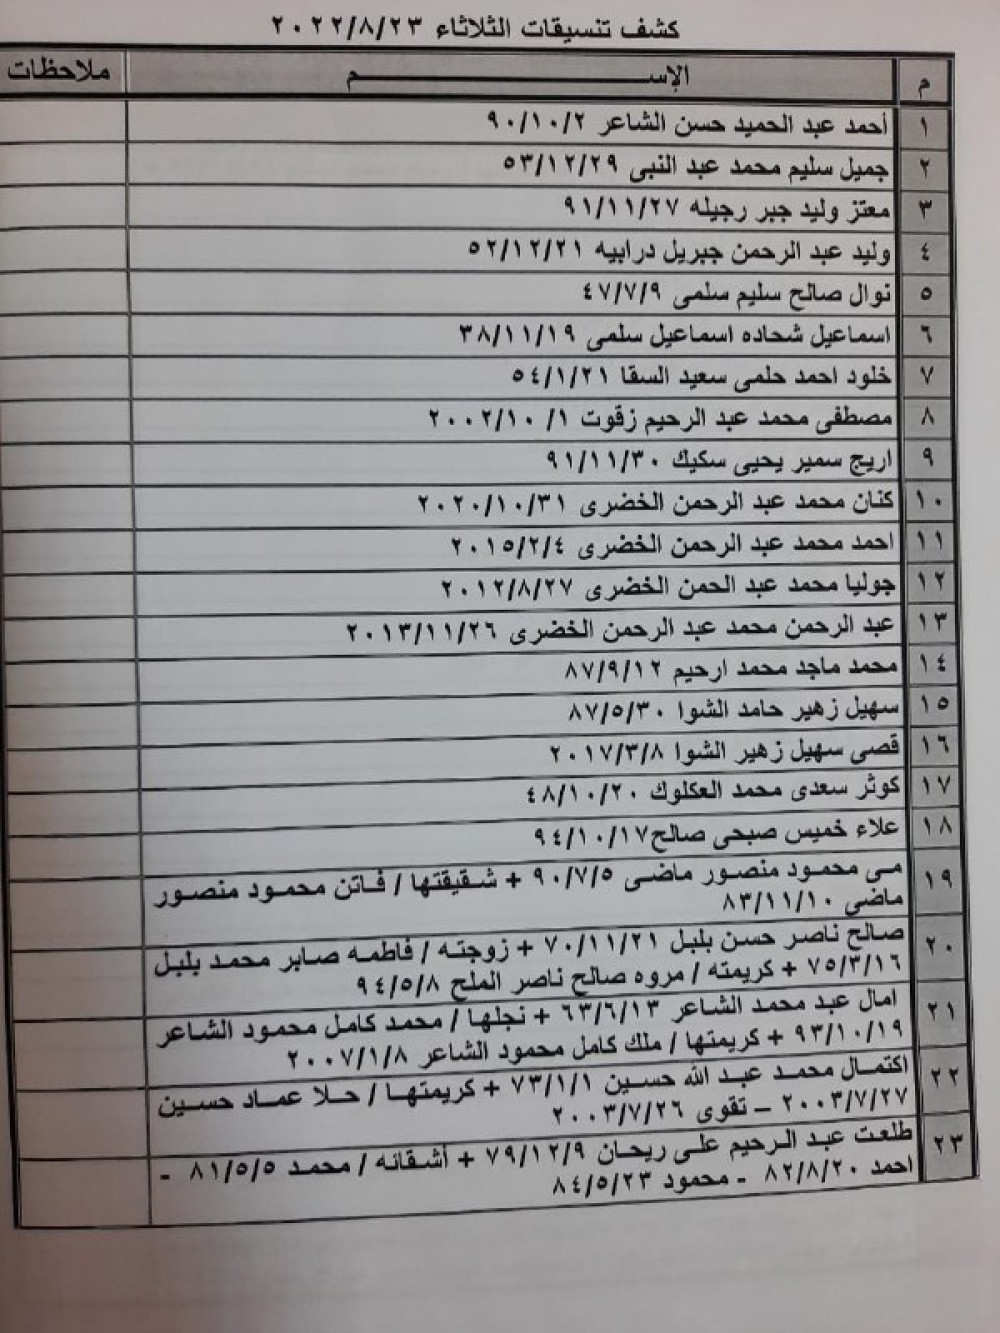 كشف تنسيقات الثلاثاء ٢٠٢٢/٨/٢٣
م الإســـــــــم ملاحظات
١ أحمد عبد الحميد حسن الشاعر ٩٠/١٠/٢
٢ جميل سليم محمد عبد النبى ٥٣/١٢/٢٩
٣ معتز وليد جبر رجيله ٩١/١١/٢٧
٤ وليد عبد الرحمن جبريل درابيه ٥٢/١٢/٢١
٥ نوال صالح سليم سلمى ٤٧/٧/٩
٦ اسماعيل شحاده اسماعيل سلمى ٣٨/١١/١٩
٧ خلود احمد حلمى سعيد السقا ٥٤/١/٢١
٨ مصطفى محمد عبد الرحيم زقوت ٢٠٠٢/١٠ /١
٩ اريج سمير يحيى سكيك ٩١/١١/٣٠
١٠ كنان محمد عبد الرحمن الخضرى ٢٠٢٠/١٠/٣١
١١ احمد محمد عبد الرحمن الخضرى ٢٠١٥/٢/٤
١٢ جوليا محمد عبد الحمن الخضرى ٢٠١٢/٨/٢٧
١٣ عبد الرحمن محمد عبد الرحمن الخضرى ٢٠١٣/١١/٢٦
١٤ محمد ماجد محمد ارحيم ٨٧/٩/١٢
١٥ سهيل زهير حامد الشوا ٨٧/٥/٣٠
١٦ قصى سهيل زهير الشوا ٢٠١٧/٣/٨
١٧ كوثر سعدى محمد العكلوك ٤٨/١٠/٢٠
١٨ علاء خميس صبحى صالح٩٤/١٠/١٧
١٩ مى محمود منصور ماضى ٩٠/٧/٥ + شقيقتها / فاتن محمود منصور
ماضي ٨٣/١١/١٠
٢٠ صالح ناصر حسن بلبل ٧٠/١١/٢١ + زوجته / فاطمه صابر محمد بلبل
٧٥/٣/١٦ + كريمته / مروه صالح ناصر الملح ٩٤/٥/٨
٢١ امال عبد محمد الشاعر ٦٣/٦/١٣ + نجلها / محمد كامل محمود الشاعر
٩٣/١٠/١٩ + كريمتها / ملك كامل محمود الشاعر ٢٠٠٧/١/٨
٢٢ اكتمال محمد عبد الله حسين ٧٣/١/١ + كريمتها / حلا عماد حسين
٢٠٠٣/٧/٢٧ – تقوى ٢٠٠٣/٧/٢٦
٢٣ طلعت عبد الرحيم على ريحان ٧٩/١٢/٩ + أشقائه / محمد ٨١/٥/٥ -
احمد ٨٢/٨/٢٠ - محمود ٨٤/٥/٢٣